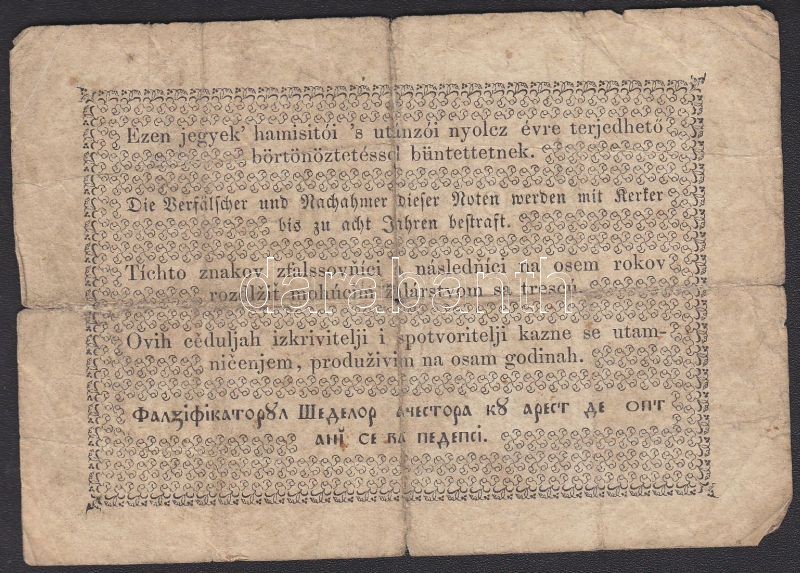 Ezen jegyek' hamisitói 's utánzói nyolcz évre terjedhető
börtönöztetéssel büntettetnek.
Die Verfälscher und Nachahmer dieser Noten werden mit Kerker
bis zu acht Jahren bestraft.
Tíchto znakov zfalssovňíci a následníci na osem rokov
rozdlžit mohúcim žalárstvom sa trescú.
Ovih cěduljah izkrivitelji i spotvoritelji kazne se utam-
ničenjem, produživim na osam godinah.
Фалꙁіфікаторꙋл Шеделор ачестора кꙋ арест де опт
анй се ва педепсі.
darabanth